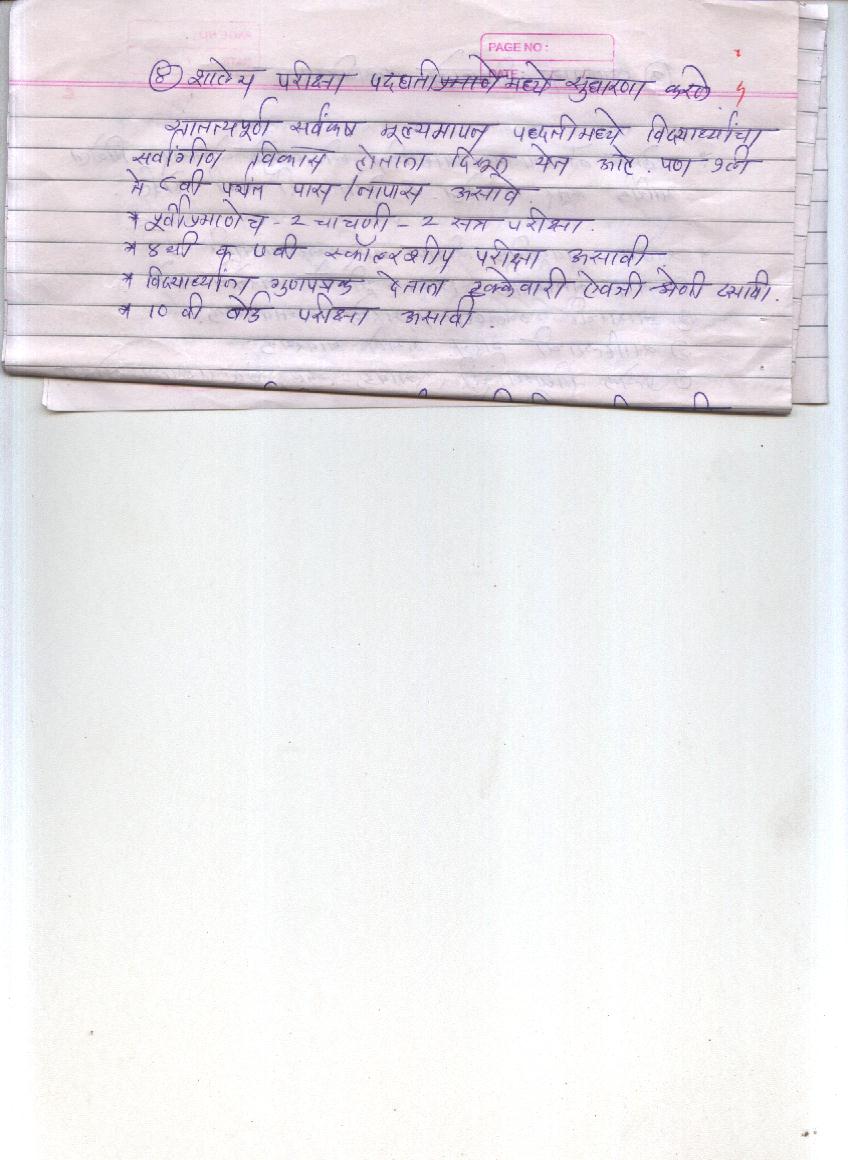 PAGE NO :
DATE
④ शालेय परीक्षा पद्धतीप्रमाणे मध्ये सुधारणा करणे.
सातत्यपूर्ण सर्वंकष मूल्यमापन पध्दतीमध्ये विद्यार्थ्यांचा
सर्वांगीण विकास होताना दिसून येत आहे. पण १ली
ते ८वी पर्यंत पास / नापास असावे.
* पूर्वीप्रमाणेच - 2 चाचणी - 2 सत्र परीक्षा.
* ४थी व ७वी स्कॉलरशीप परीक्षा असावी
* विद्यार्थ्यांना गुणपत्रक देताना टक्केवारी ऐवजी श्रेणी द्यावी.
* 10 वी बोर्ड परीक्षा असावी.